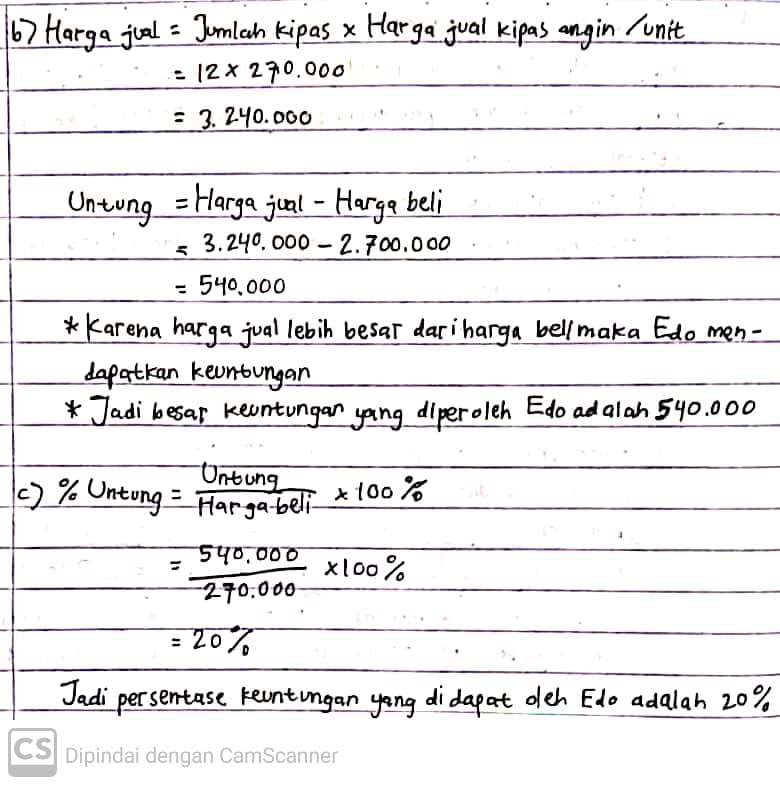 b) Harga jual = Jumlah kipas x Harga jual kipas angin /unit
= 12 x 270.000
= 3.240.000
Untung = Harga jual - Harga beli
= 3.240.000 - 2.700.000
= 540.000
* Karena harga jual lebih besar dari harga beli maka Edo men-
dapatkan keuntungan
* Jadi besar keuntungan yang diperoleh Edo adalah 540.000
c) % Untung = Untung / Harga beli x 100 %
= 540.000 / 270.000 x 100 %
= 20%
Jadi persentase keuntungan yang di dapat oleh Edo adalah 20%
CS Dipindai dengan CamScanner